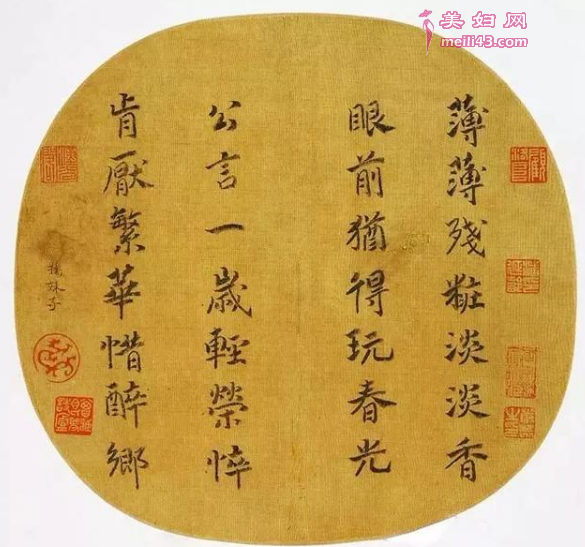 美妇网
meili43.com
薄薄殘粧淡淡香
眼前猶得玩春光
公言一歲輕榮悴
肯厭繁華惜醉鄉
楊妹子